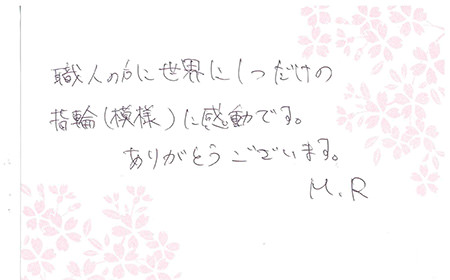 職人の方に世界に1つだけの
指輪(模様)に感動です。
ありがとうございます。
M.R